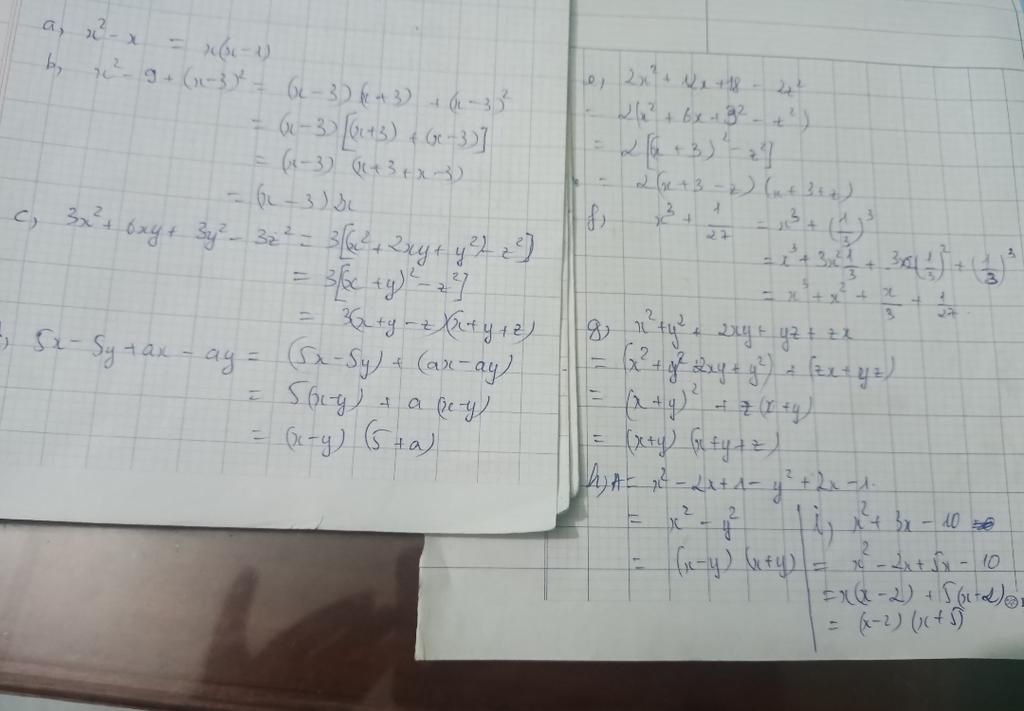 a, x² - x = x(x-1)
b, x² - 9 + (x-3)² = (x-3)(x+3) + (x-3)²
= (x-3)[(x+3) + (x-3)]
= (x-3) (x+3+x-3)
= (x-3)2x
c, 3x² + 6xy + 3y² - 3z² = 3[(x² + 2xy + y²) - z²]
= 3[(x+y)² - z²]
= 3(x+y-z)(x+y+z)
5x - 5y + ax - ay = (5x-5y) + (ax-ay)
= 5(x-y) + a(x-y)
= (x-y) (5+a)
e, 2x² + 12x + 18 - 2z²
= 2(x² + 6x + 9 - z²)
= 2[(x+3)² - z²]
= 2(x+3-z)(x+3+z)
f, x³ + 1/27 = x³ + (1/3)³
= x³ + 3x² 1/3 + 3x(1/3)² + (1/3)³
= x³ + x² + x/3 + 1/27.
g, x² + y² + 2xy + yz + zx
= (x² + 2xy + y²) + (zx + yz)
= (x+y)² + z(x+y)
= (x+y) (x+y+z)
h, A = x² - 2x + 1 - y² + 2x - 1.
= x² - y²
= (x-y) (x+y)
i, x² + 3x - 10
= x² - 2x + 5x - 10
= x(x-2) + 5(x-2)
= (x-2) (x+5)